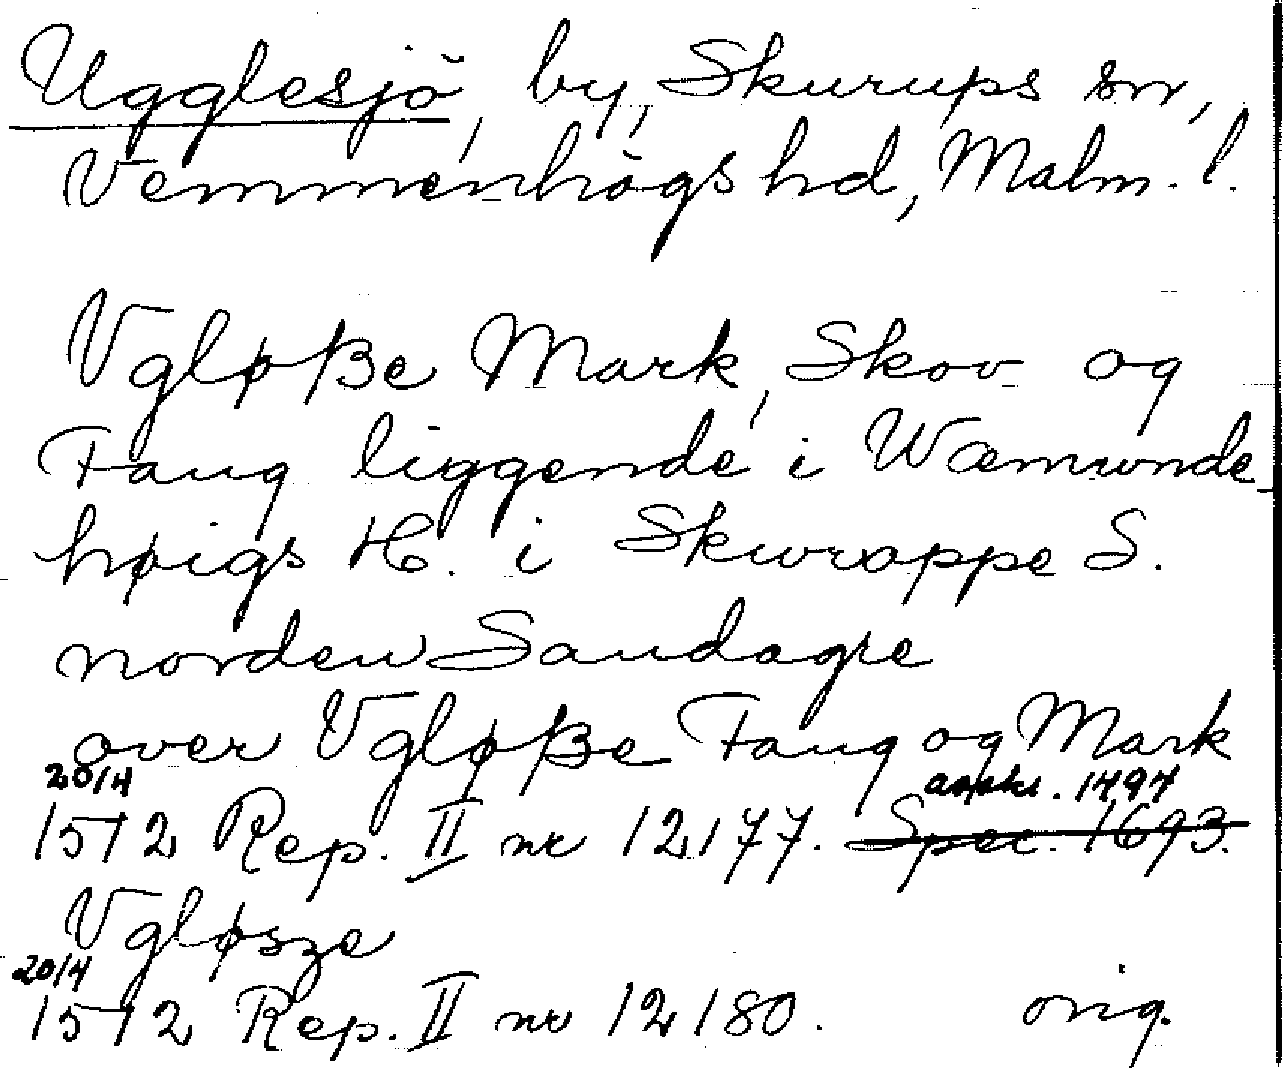 Ugglesjö, by, Skurups sn,
Vemmenhögs hd, Malm. l.
Vgløße Mark, Skov og
Fang liggende i Wæmunde-
høigs H. i Skuroppe S.
norden Sandagre
over Vgløße Fang og Mark
20/4 avskr. 1494
1512 Rep. II nr 12177. Spec. 1693.
Vgløsze
20/4
1512 Rep. II nr 12180. orig.